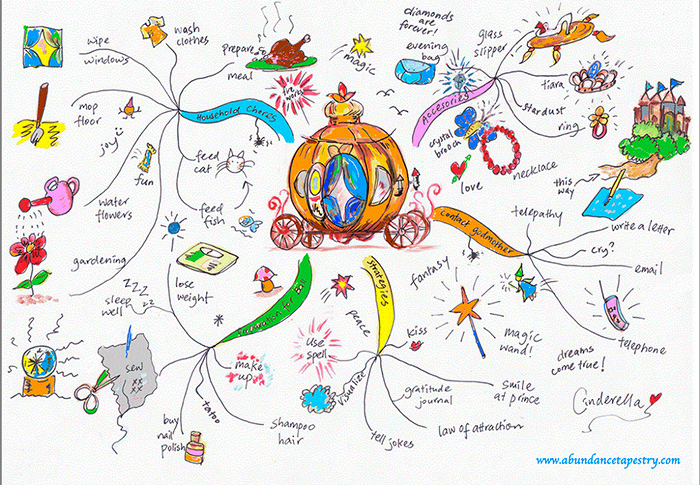 wipe
windows
wash
clothes
prepare
meal
mop
floor
joy
fun
HOUSEHOLD CHORES
fire
works
magic
feed
cat
feed
fish
water
flowers
gardening
diamonds
are
forever!
evening
bag
glass
slipper
tiara
stardust
ring
ACCESSORIES
crystal
brooch
love
necklace
this
way
contact godmother
telepathy
write a letter
cry?
email
telephone
magic
wand!
dreams
come true!
fantasy
STRATEGIES
peace
kiss
smile
at prince
gratitude
journal
law of attraction
tell jokes
visualize
use
spell
Preparation for Ball
lose
weight
zzz
zz
sleep
well
sew
xx
xx
make
up
tatoo
buy
nail
polish
shampoo
hair
Cinderella
www.abundancetapestry.com